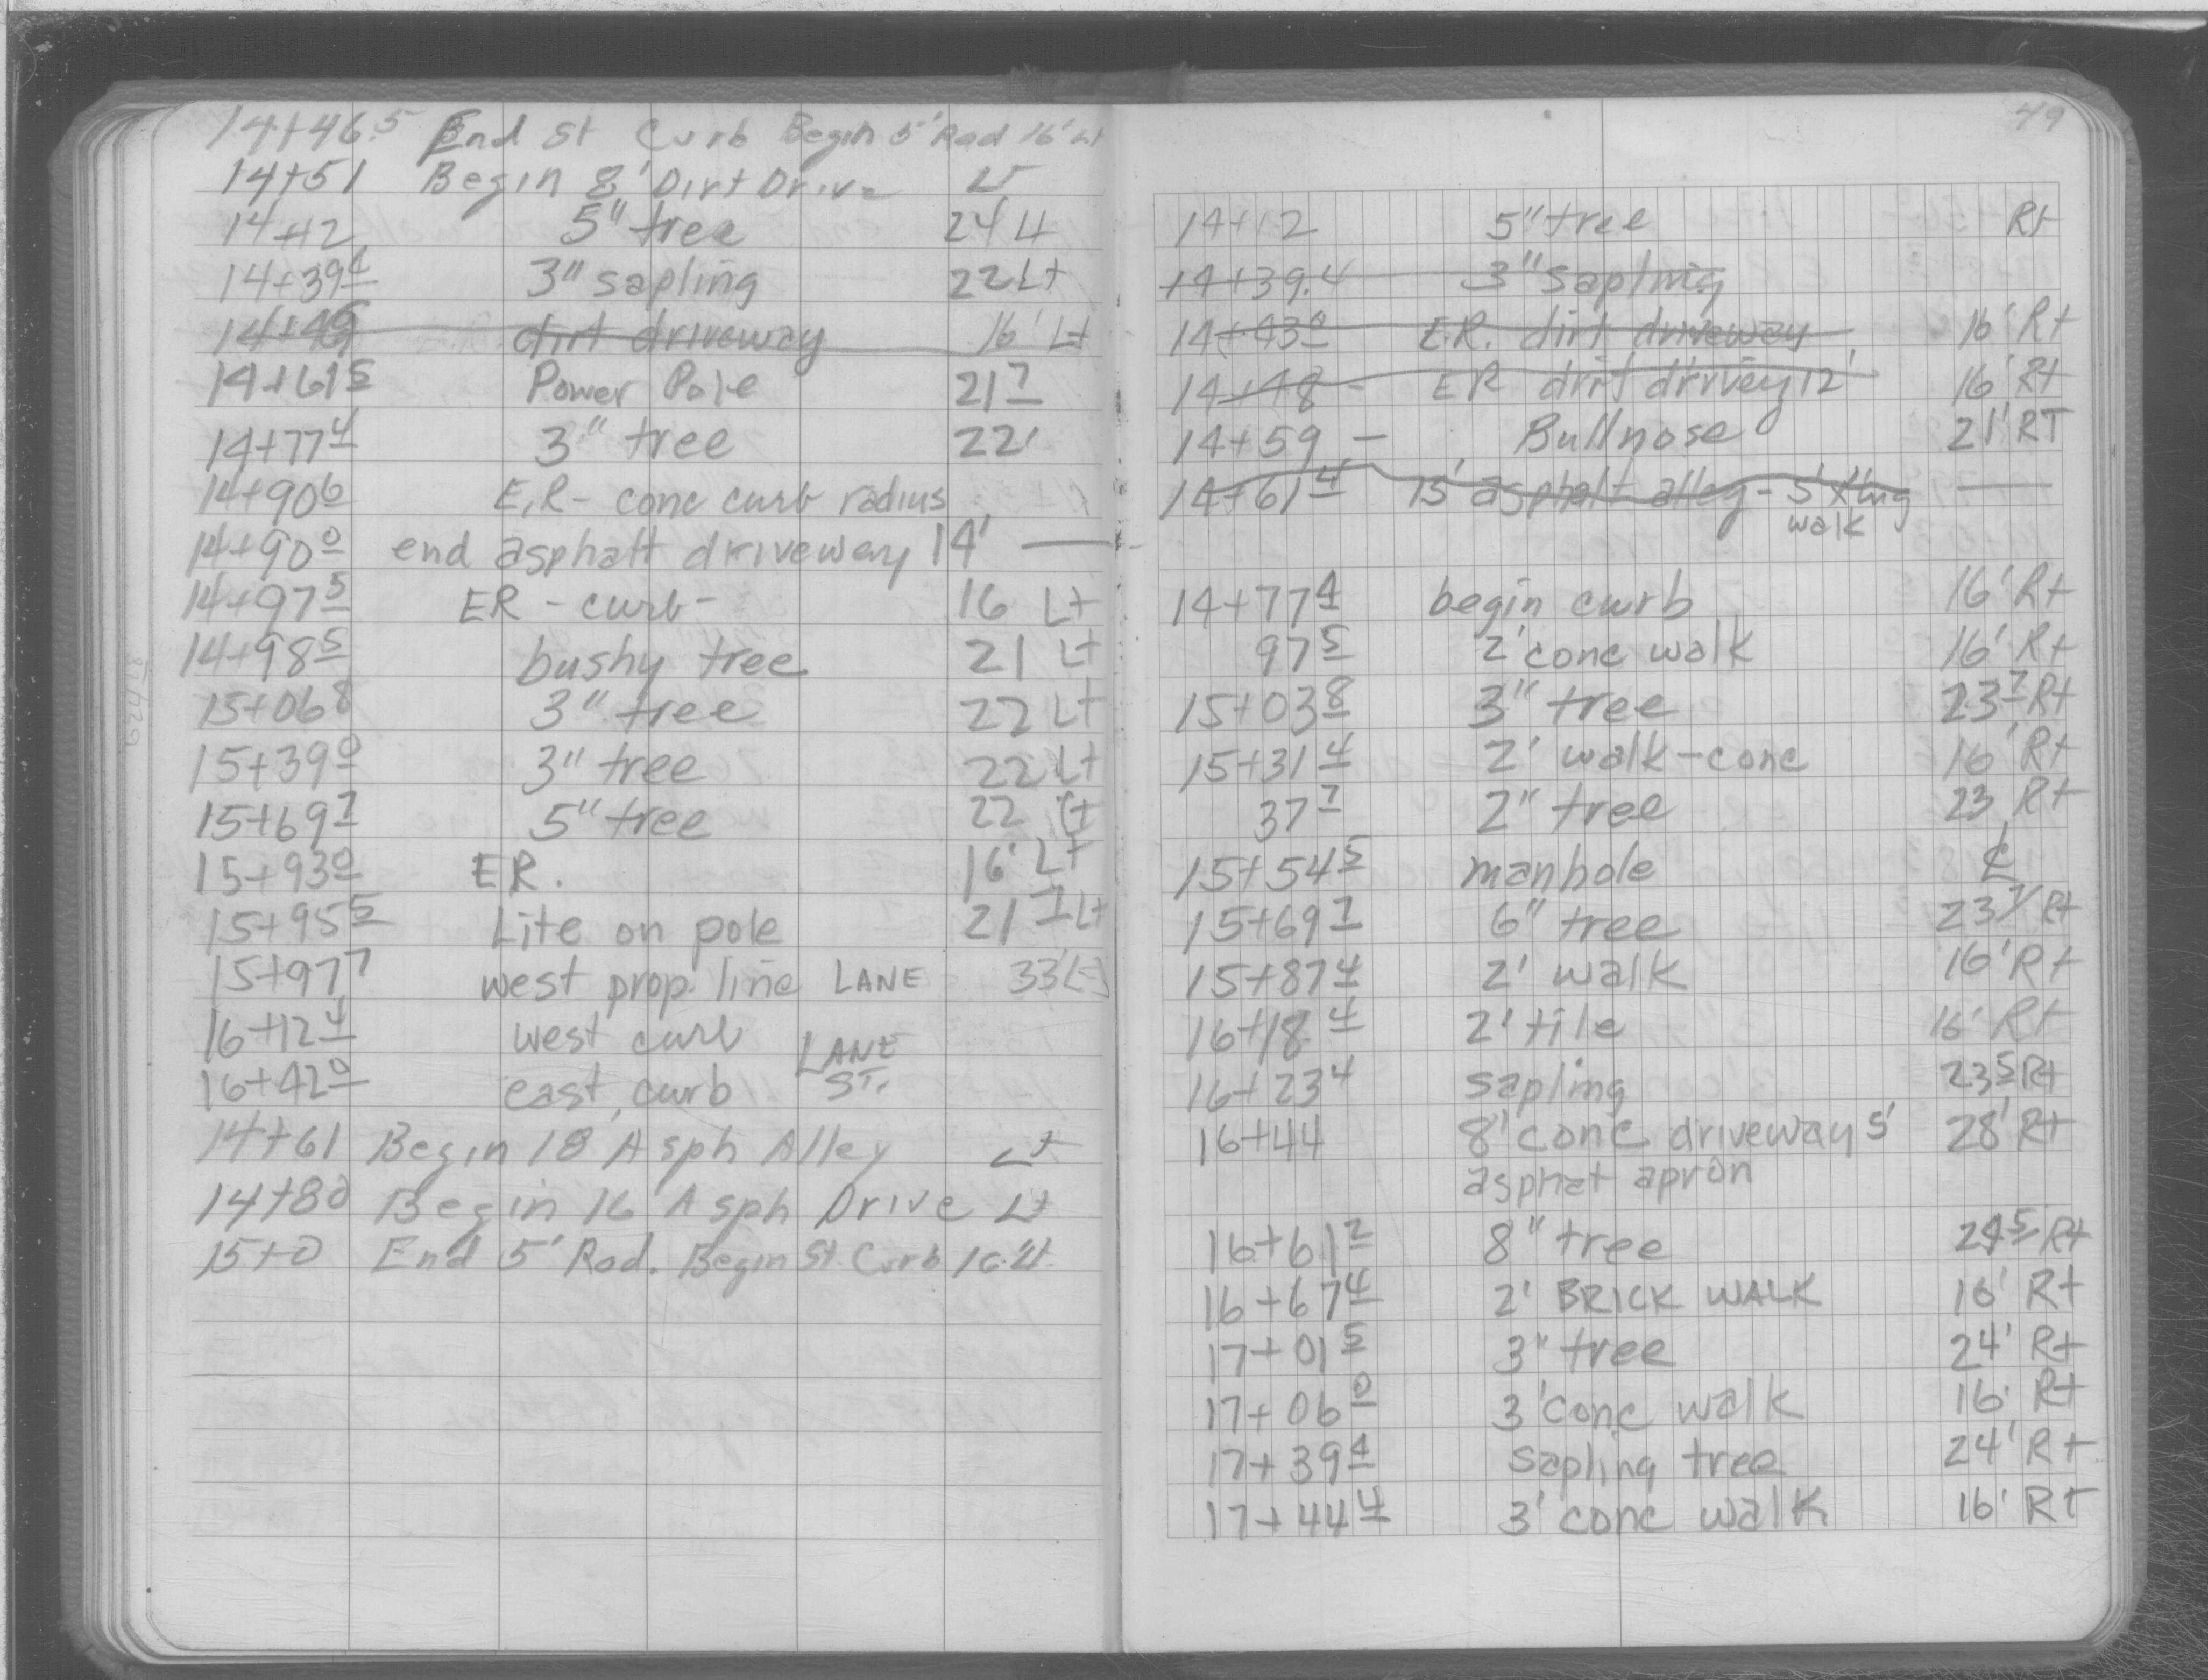 14+46.5 End St Curb Begin 5' Rad 16' Lt
14+51 Begin 8' Dirt Drive Lt
14+12 5" tree 24 Lt
14+39.4 3" sapling 22 Lt
14+49 dirt driveway 16' Lt
14+61.5 Power Pole 21.7
14+77.4 3" tree 22'
14+90.6 E.R- conc curb radius
14+90.0 end asphalt driveway 14' —
14+97.5 ER - curb - 16 Lt
14+98.5 bushy tree 21 Lt
15+06.8 3" tree 22 Lt
15+39.0 3" tree 22 Lt
15+69.7 5" tree 22 Lt
15+93.0 ER. 16' Lt
15+95.5 Lite on pole 21.7 Lt
15+97.7 west prop. line LANE 33 Lt
16+12.4 west curb
16+42.0 east curb LANE ST.
14+61 Begin 18' Asph Alley Lt
14+80 Begin 16' Asph Drive Lt
15+0 End 5' Rad. Begin St. Curb 16' Lt.
49
14+12 5" tree Rt
14+39.4 3" sapling
14+43.0 E.R. dirt driveway 16' Rt
14+48 - ER dirt drivey 12' 16' Rt
14+59 — Bullnose 21' RT
14+61.4 15' asphalt alley - 5' —
walk
14+77.4 begin curb 16' Rt
97.5 2' conc walk 16' Rt
15+03.8 3" tree 23.7 Rt
15+31.4 2' walk-conc 16' Rt
37.7 2" tree 23 Rt
15+54.5 manhole ℄
15+69.7 6" tree 23.7 Rt
15+87.4 2' walk 16' Rt
16+18.4 2' tile 16' Rt
16+23.4 sapling 23.5 Rt
16+44 8' conc driveway 5' 28' Rt
asphat apron
16+61.2 8" tree 24.5 Rt
16+67.4 2' BRICK WALK 16' Rt
17+01.5 3" tree 24' Rt
17+06.0 3' conc walk 16' Rt
17+39.4 sapling tree 24' Rt
17+44.4 3' conc walk 16' Rt